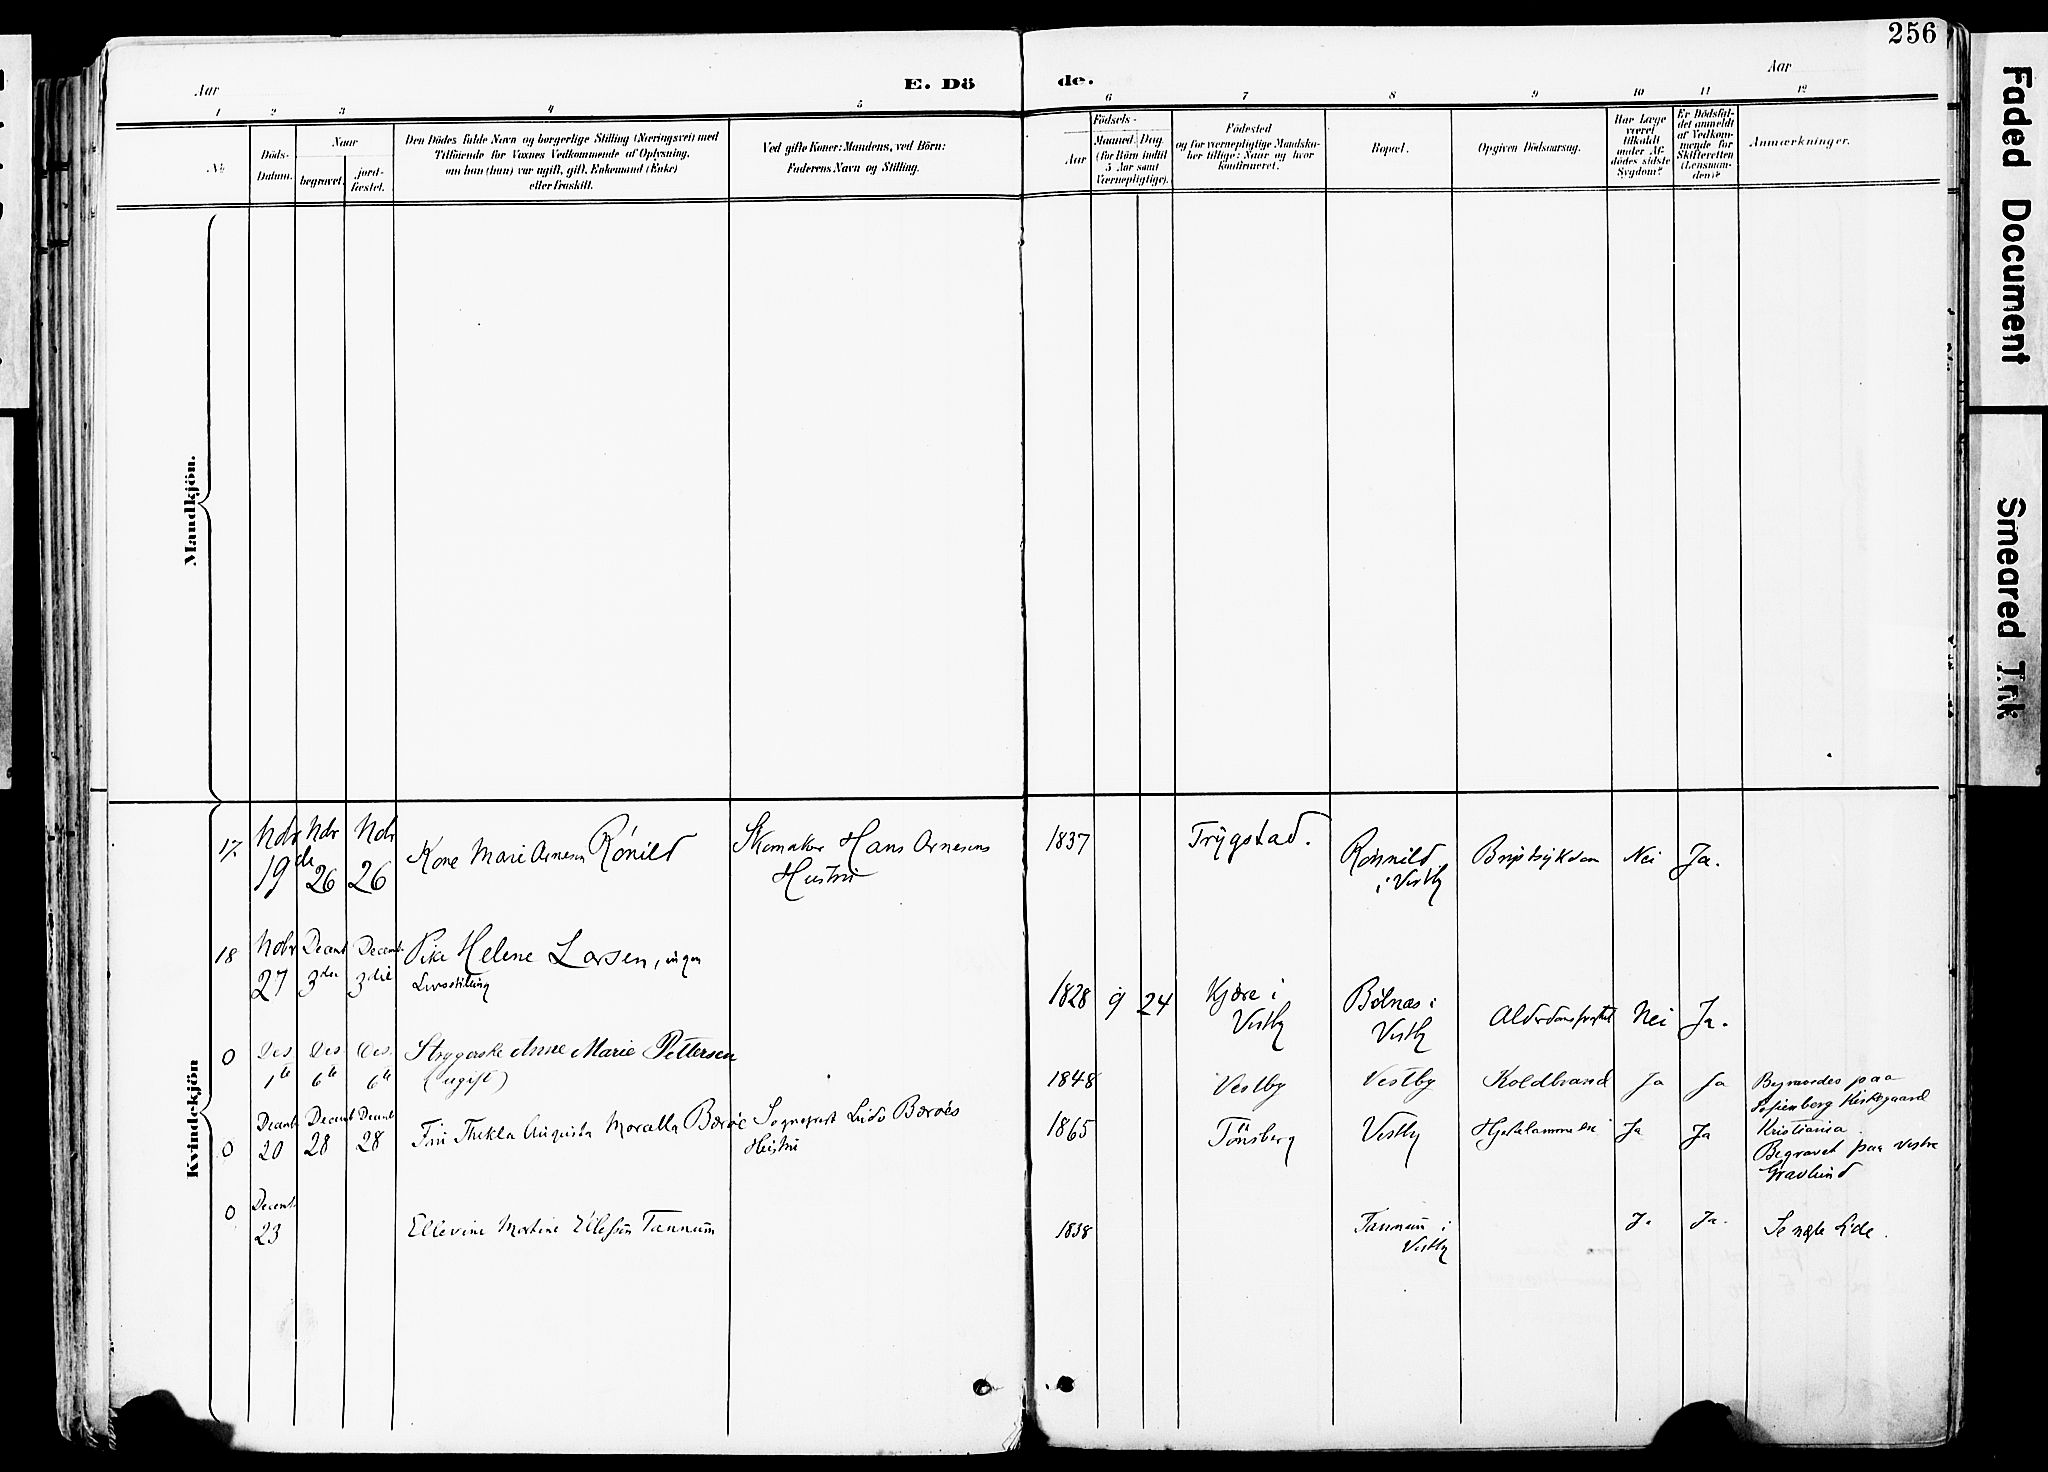 256
Aar
E. Dö
de.
Aar
1 2 3 4 5 6 7 8 9 10 11 12
No
Döds-
Datum.
Naar
begravet.
jord-
fæstet.
Den Dödes fulde Navn og borgerlige Stilling (Næringsvei) med
Tilföiende for Voxnes Vedkommende af Oplysning,
om han (hun) var ugift, gift, Enkemand (Enke)
eller fraskilt.
Ved gifte Koner: Mandens, ved Börn:
Faderens Navn og Stilling.
Aar
Födsels-
Maaned Dag
(for Börn indtil
5 Aar samt
Værnepligtige).
Födested
og for værnepligtige Mandska-
ber tillige: Naar og hvor
konfirmeret.
Bopæl.
Opgiven Dödsaarsag.
Har Læge
været
tilkaldt
under Af-
dödes sidste
Sygdom?
Er Dödsfal-
det anmeldt
af Vedkom-
mende for
Skifteretten
(Lensman-
den)?
Anmærkninger.
Mandkjön.
Kvindekjön
17. Nobr 19de Nobr 26 Nobr 26 Kone Marie Arnesen Rönild Skomaker Hans Arnesens
Hustru
1837 Trygstad. Rönnild
i Vestby
Brystsykdom Nei Ja.
18 Nobr 27 Decemb 3die Decemb 3die Pike Helene Larsen, ingen
Livsstilling
1828 9 24 Kjære i
Vestby
Bölnæs i
Vestby
Alderdoms Nei Ja.
0 Des 1te Des 6te Des 6te Strygerske Anne Marie Pettersen
(ugift)
1848 Vestby Vestby Koldbrand Ja Ja Begravedes paa
Sofienberg Kirkegaard
Kristiania.
0 Decemb 20 Decemb 28 Decemb 28 Thekla Augusta Bærøe Sogneprest Bærøes
Hustru
1865 Tönsberg Vestby Hjertelammelse Ja Ja Begravet paa Vestre
Gravlund
0 Decemb 23 Ellevine Martine Tannum
1838 Tannum i
Vestby
Ja Ja. Se næste Side.
Faded Document
Smeared Ink